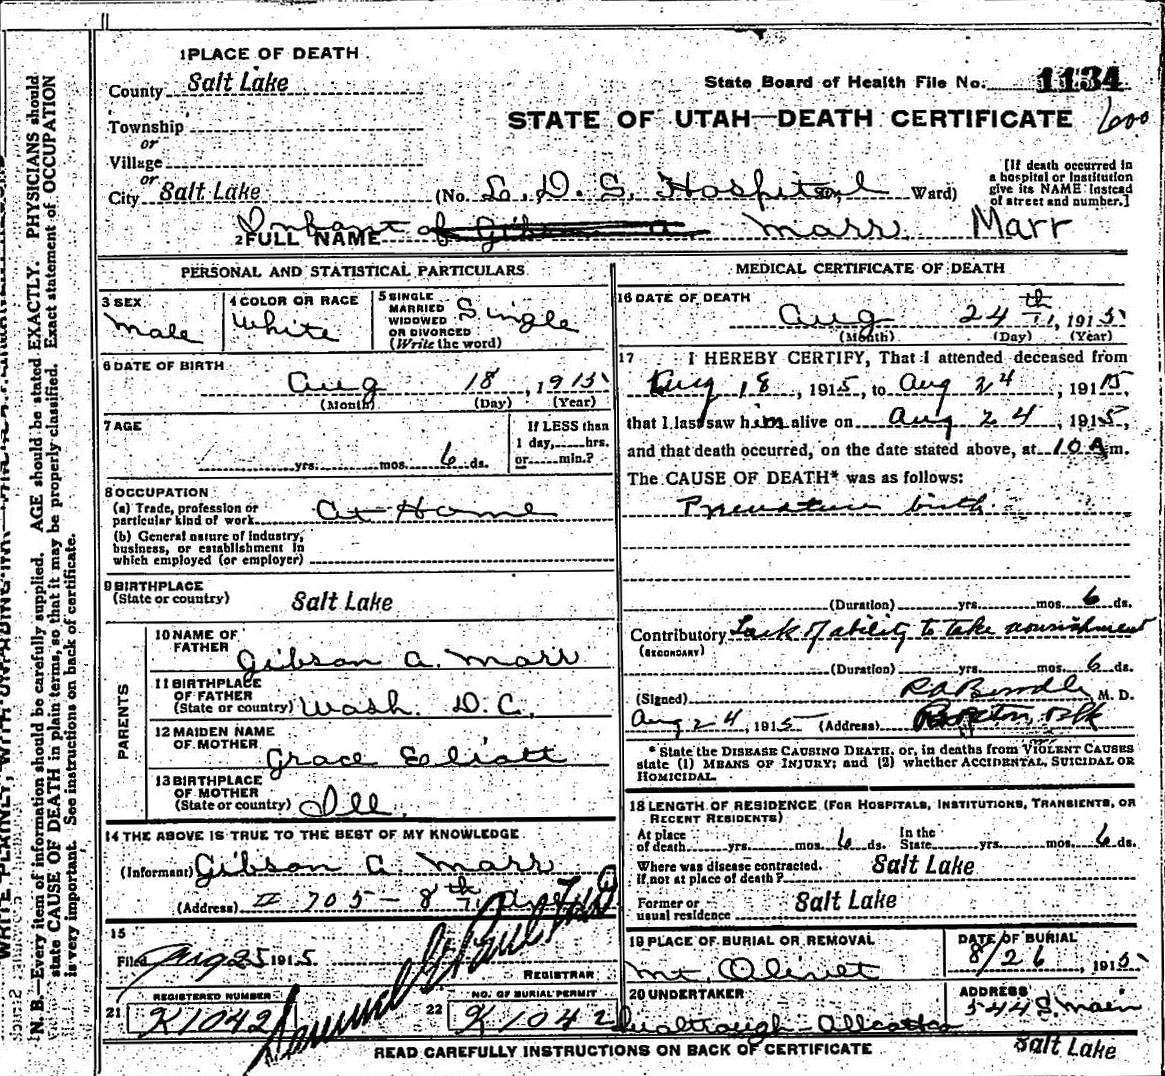 1 PLACE OF DEATH
County Salt Lake
State Board of Health File No. 1134
Township
or
Village
or
City Salt Lake
STATE OF UTAH—DEATH CERTIFICATE
(No. L. D. S. Hospital St., Ward)
[If death occurred in
a hospital or institution
give its NAME instead
of street and number.]
2 FULL NAME Infant of Gibson A. Marr Marr
PERSONAL AND STATISTICAL PARTICULARS
3 SEX
Male
4 COLOR OR RACE
White
5 SINGLE
MARRIED
WIDOWED
OR DIVORCED
(Write the word)
Single
6 DATE OF BIRTH
Aug 18, 1915
(Month) (Day) (Year)
7 AGE
yrs. mos. 6 ds.
If LESS than
1 day, hrs.
or min.?
8 OCCUPATION
(a) Trade, profession or
particular kind of work At Home
(b) General nature of industry,
business, or establishment in
which employed (or employer)
9 BIRTHPLACE
(State or country) Salt Lake
PARENTS
10 NAME OF
FATHER Gibson A. Marr
11 BIRTHPLACE
OF FATHER
(State or country) Wash. D. C.
12 MAIDEN NAME
OF MOTHER Grace Elliott
13 BIRTHPLACE
OF MOTHER
(State or country) Ill.
14 THE ABOVE IS TRUE TO THE BEST OF MY KNOWLEDGE
(Informant) Gibson A. Marr
(Address) 705 - 8th Ave
15
Filed Aug 25 1915
REGISTRAR
REGISTERED NUMBER
21 K1042
NO. OF BURIAL PERMIT
22 K1042
MEDICAL CERTIFICATE OF DEATH
16 DATE OF DEATH
Aug 24th, 1915
(Month) (Day) (Year)
17 I HEREBY CERTIFY, That I attended deceased from
Aug 18, 1915, to Aug 24, 1915
that I last saw him alive on Aug 24, 1915,
and that death occurred, on the date stated above, at 10 A m.
The CAUSE OF DEATH* was as follows:
Premature birth
(Duration) yrs. mos. 6 ds.
Contributory Lack of ability to take nourishment
(SECONDARY)
(Duration) yrs. mos. 6 ds.
(Signed) M. D.
Aug 24, 1915 (Address)
* State the DISEASE CAUSING DEATH, or, in deaths from VIOLENT CAUSES
state (1) MEANS OF INJURY; and (2) whether ACCIDENTAL, SUICIDAL OR
HOMICIDAL.
18 LENGTH OF RESIDENCE (FOR HOSPITALS, INSTITUTIONS, TRANSIENTS, OR
RECENT RESIDENTS)
At place
of death yrs. mos. 6 ds.
In the
State yrs. mos. 6 ds.
Where was disease contracted.
If not at place of death? Salt Lake
Former or
usual residence Salt Lake
19 PLACE OF BURIAL OR REMOVAL
Mt. Olivet
DATE OF BURIAL
8/26, 1915
20 UNDERTAKER
ADDRESS
544 S. Main
Salt Lake
READ CAREFULLY INSTRUCTIONS ON BACK OF CERTIFICATE
N. B.—Every item of information should be carefully supplied. AGE should be stated EXACTLY. PHYSICIANS should
state CAUSE OF DEATH in plain terms, so that it may be properly classified. Exact statement of OCCUPATION
is very important. See instructions on back of certificate.